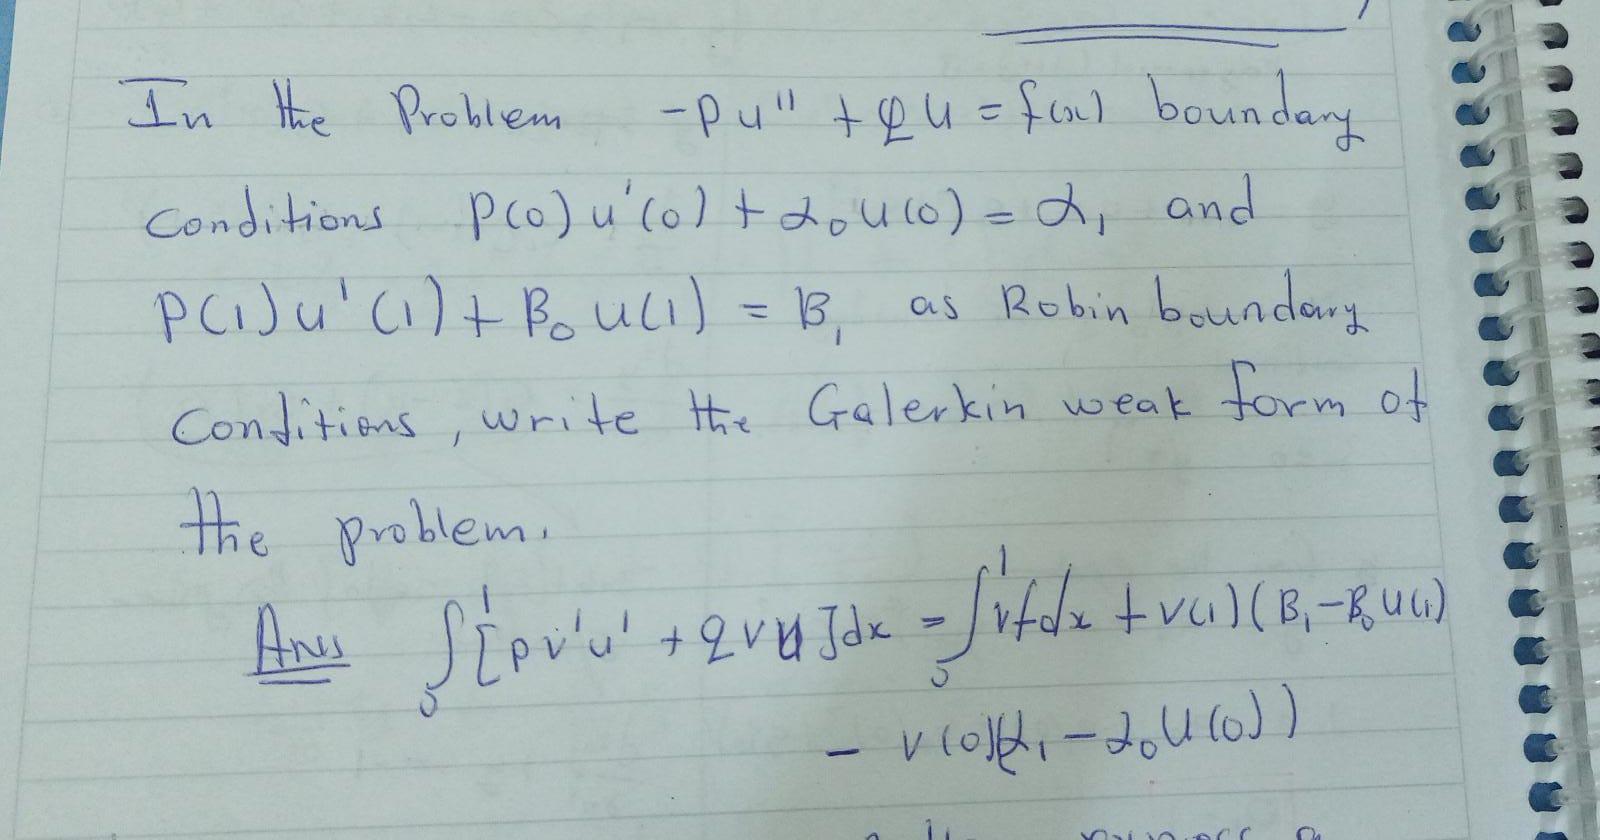 In the Problem -pu'' + qu = f(x) boundary
conditions p(0)u'(0) + α₀u(0) = α₁ and
p(1)u'(1) + B₀u(1) = B₁ as Robin boundary
conditions, write the Galerkin weak form of
the problem.
Ans ∫₀¹[pv'u' + qvu]dx = ∫₀¹vfdx + v(1)(B₁-B₀u(1)
- v(0)(α₁ - α₀u(0))